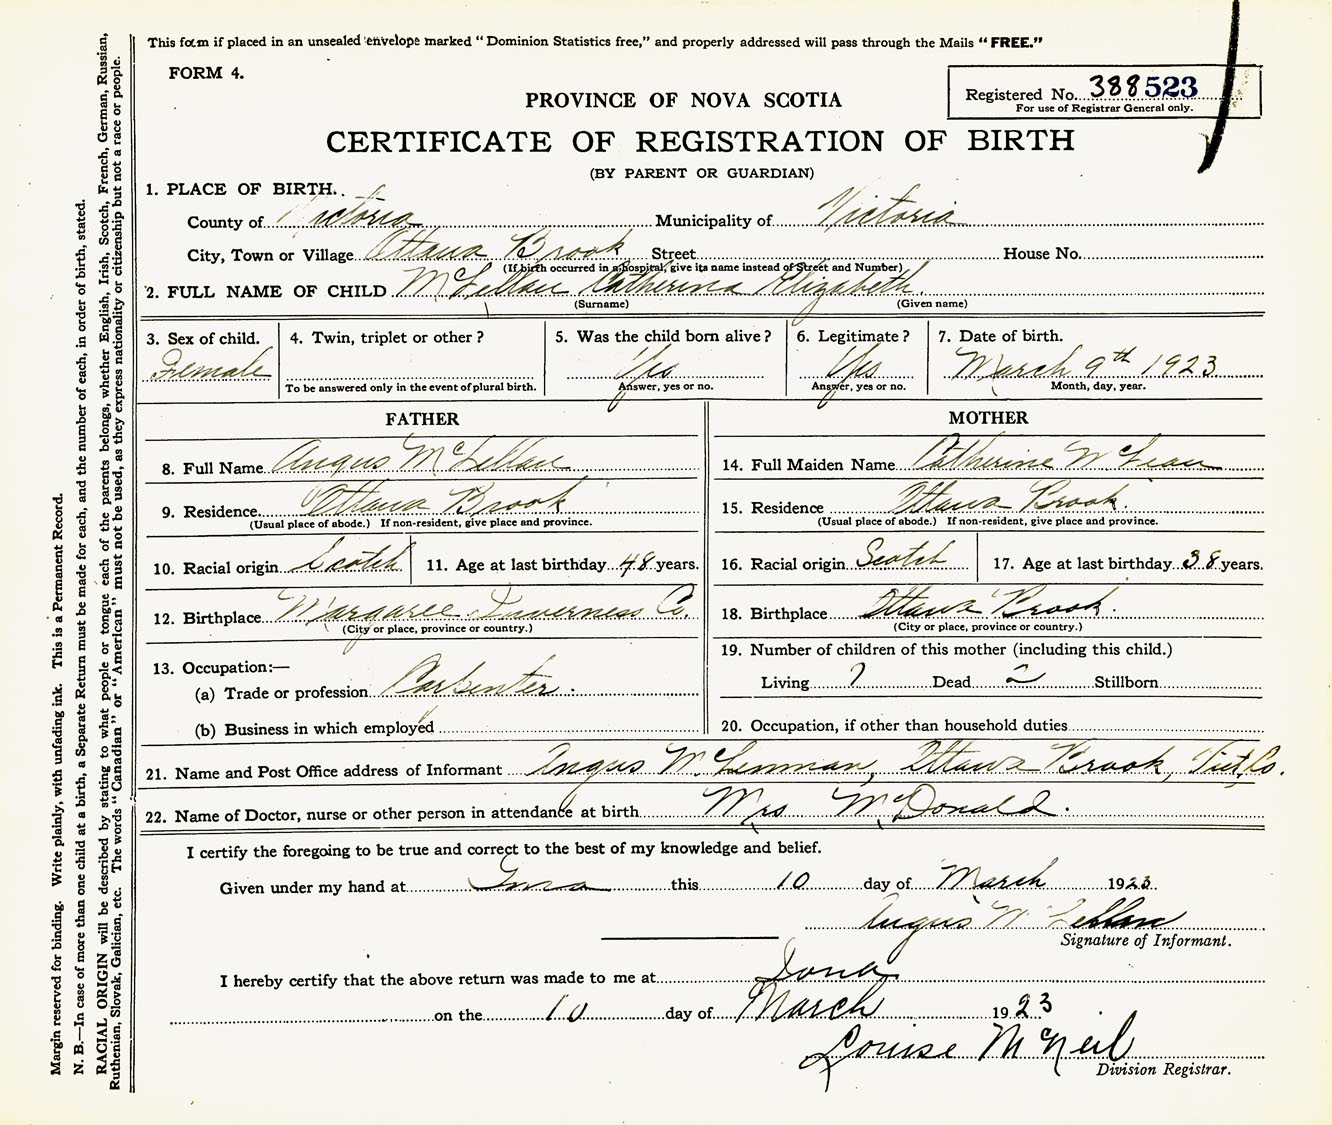 This form if placed in an unsealed envelope marked "Dominion Statistics free," and properly addressed will pass through the Mails "FREE."
FORM 4.
Registered No. 388523
For use of Registrar General only.
PROVINCE OF NOVA SCOTIA
CERTIFICATE OF REGISTRATION OF BIRTH
(BY PARENT OR GUARDIAN)
1. PLACE OF BIRTH.
County of Victoria Municipality of Victoria
City, Town or Village Ottawa Brook Street House No.
(If birth occurred in a hospital, give its name instead of Street and Number)
2. FULL NAME OF CHILD McLellan Catherina Elizabeth
(Surname) (Given name)
3. Sex of child. 4. Twin, triplet or other? 5. Was the child born alive? 6. Legitimate? 7. Date of birth.
Female Yes Yes March 9th 1923
To be answered only in the event of plural birth. Answer, yes or no. Answer, yes or no. Month, day, year.
FATHER MOTHER
8. Full Name Angus McLellan 14. Full Maiden Name Catherine McLean
9. Residence Ottawa Brook 15. Residence Ottawa Brook.
(Usual place of abode.) If non-resident, give place and province. (Usual place of abode.) If non-resident, give place and province.
10. Racial origin Scotch 11. Age at last birthday 48 years. 16. Racial origin Scotch 17. Age at last birthday 38 years.
12. Birthplace Margaree Inverness Co. 18. Birthplace Ottawa Brook.
(City or place, province or country.) (City or place, province or country.)
13. Occupation:— 19. Number of children of this mother (including this child.)
(a) Trade or profession Carpenter. Living 7 Dead 2 Stillborn
(b) Business in which employed 20. Occupation, if other than household duties
21. Name and Post Office address of Informant Angus McLennan, Ottawa Brook, Vict. Co.
22. Name of Doctor, nurse or other person in attendance at birth Mrs McDonald.
I certify the foregoing to be true and correct to the best of my knowledge and belief.
Given under my hand at Iona this 10 day of March 1923
Angus McLellan
Signature of Informant.
I hereby certify that the above return was made to me at Iona
on the 10 day of March 1923
Louise McNeil
Division Registrar.
Margin reserved for binding. Write plainly, with unfading ink. This is a Permanent Record.
N. B.—In case of more than one child at a birth, a Separate Return must be made for each, and the number of each, in order of birth, stated.
RACIAL ORIGIN will be described by stating to what people or tongue each of the parents belongs, whether English, Irish, Scotch, French, German, Russian,
Ruthenian, Slovak, Galician, etc. The words "Canadian" or "American" must not be used, as they express nationality or citizenship but not a race or people.